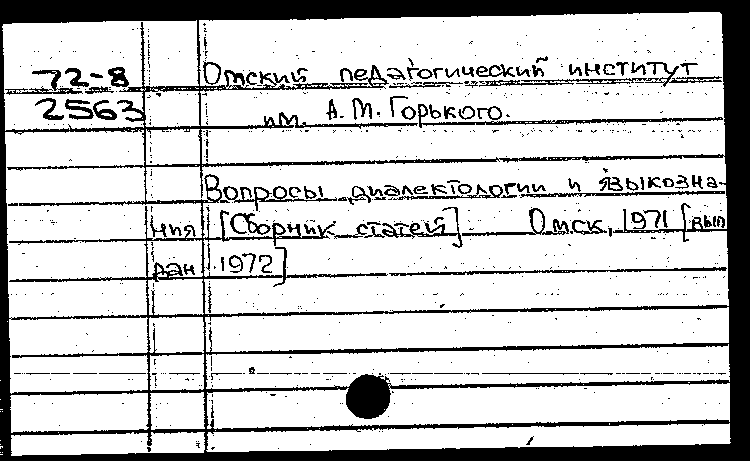 72-8 Омский педагогический институт
2563 им. А.М. Горького.
Вопросы диалектологии и языкозна-
ния [Сборник статей] Омск, 1971 [вып
дан 1972]